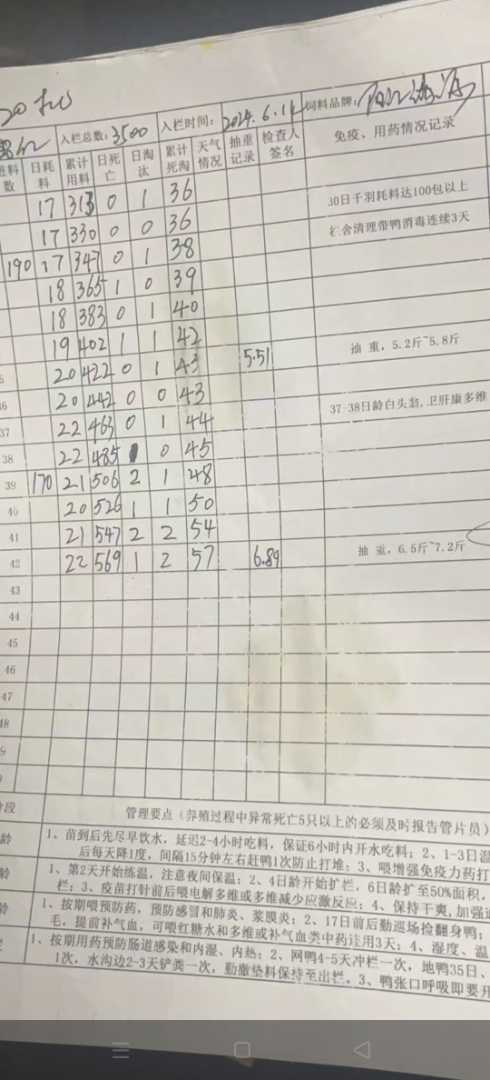 入栏总数: 3500 入栏时间: 2024.6.14 饲料品牌:
料数 日耗料 累计用料 日死亡 日淘汰 累计死淘 天气情况 抽重记录 检查人签名 免疫、用药情况记录
17 313 0 1 36 30日千羽耗料达100包以上
17 330 0 0 36 舍清理带鸭消毒连续3天
190 17 347 0 1 38
18 365 1 0 39
18 383 0 1 40
19 402 1 1 42
20 422 0 1 43 5.51 抽重，5.2斤~5.8斤
20 442 0 0 43
37 22 463 0 1 44 37-38日龄白头翁，卫肝康多维
38 22 485 0 45
39 170 21 506 2 1 48
40 20 526 1 1 50
41 21 547 2 2 54
42 22 569 1 2 57 6.89 抽重，6.5斤~7.2斤
43
44
45
46
47
48
管理要点（养殖过程中异常死亡5只以上的必须及时报告管片员）
1、苗到后先尽早饮水，延迟2-4小时吃料，保证6小时内开水吃料；2、1-3日温
后每天降1度，间隔15分钟左右赶鸭1次防止打堆；3、喂增强免疫力药打
1、第2天开始练温，注意夜间保温；2、4日龄开始扩栏，6日龄扩至50%面积，
栏；3、疫苗打针前后喂电解多维或多维减少应激反应；4、保持干爽，加强通
1、按期喂预防药，预防感冒和肺炎、浆膜炎；2、17日前后勤巡场捡翻身鸭；
毛，提前补气血，可喂红糖水和多维或补气血类中药连用3天；4、湿度、温
1、按期用药预防肠道感染和内湿、内热；2、网鸭4-5天冲栏一次，地鸭35日、
1次，水沟边2-3天铲粪一次，勤撒垫料保持至出栏。3、鸭张口呼吸即要开